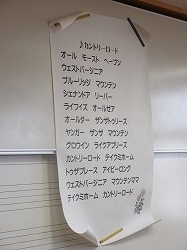 ♪カントリーロード
オール　モースト　ヘーブン
ウェストバージニア
ブルーリッジ　マウンテン
シェナンドア　リバー
ライフイズ　オールゼア
オールダー　ザンザトゥリーズ
ヤンガー　ザンザ　マウンテン
グロウイン　ライクアブリーズ
カントリーロード　テイクミホーム
トゥザプレース　アイビーロング
ウェストバージニア　マウンテンママ
テイクミホーム　カントリーロード